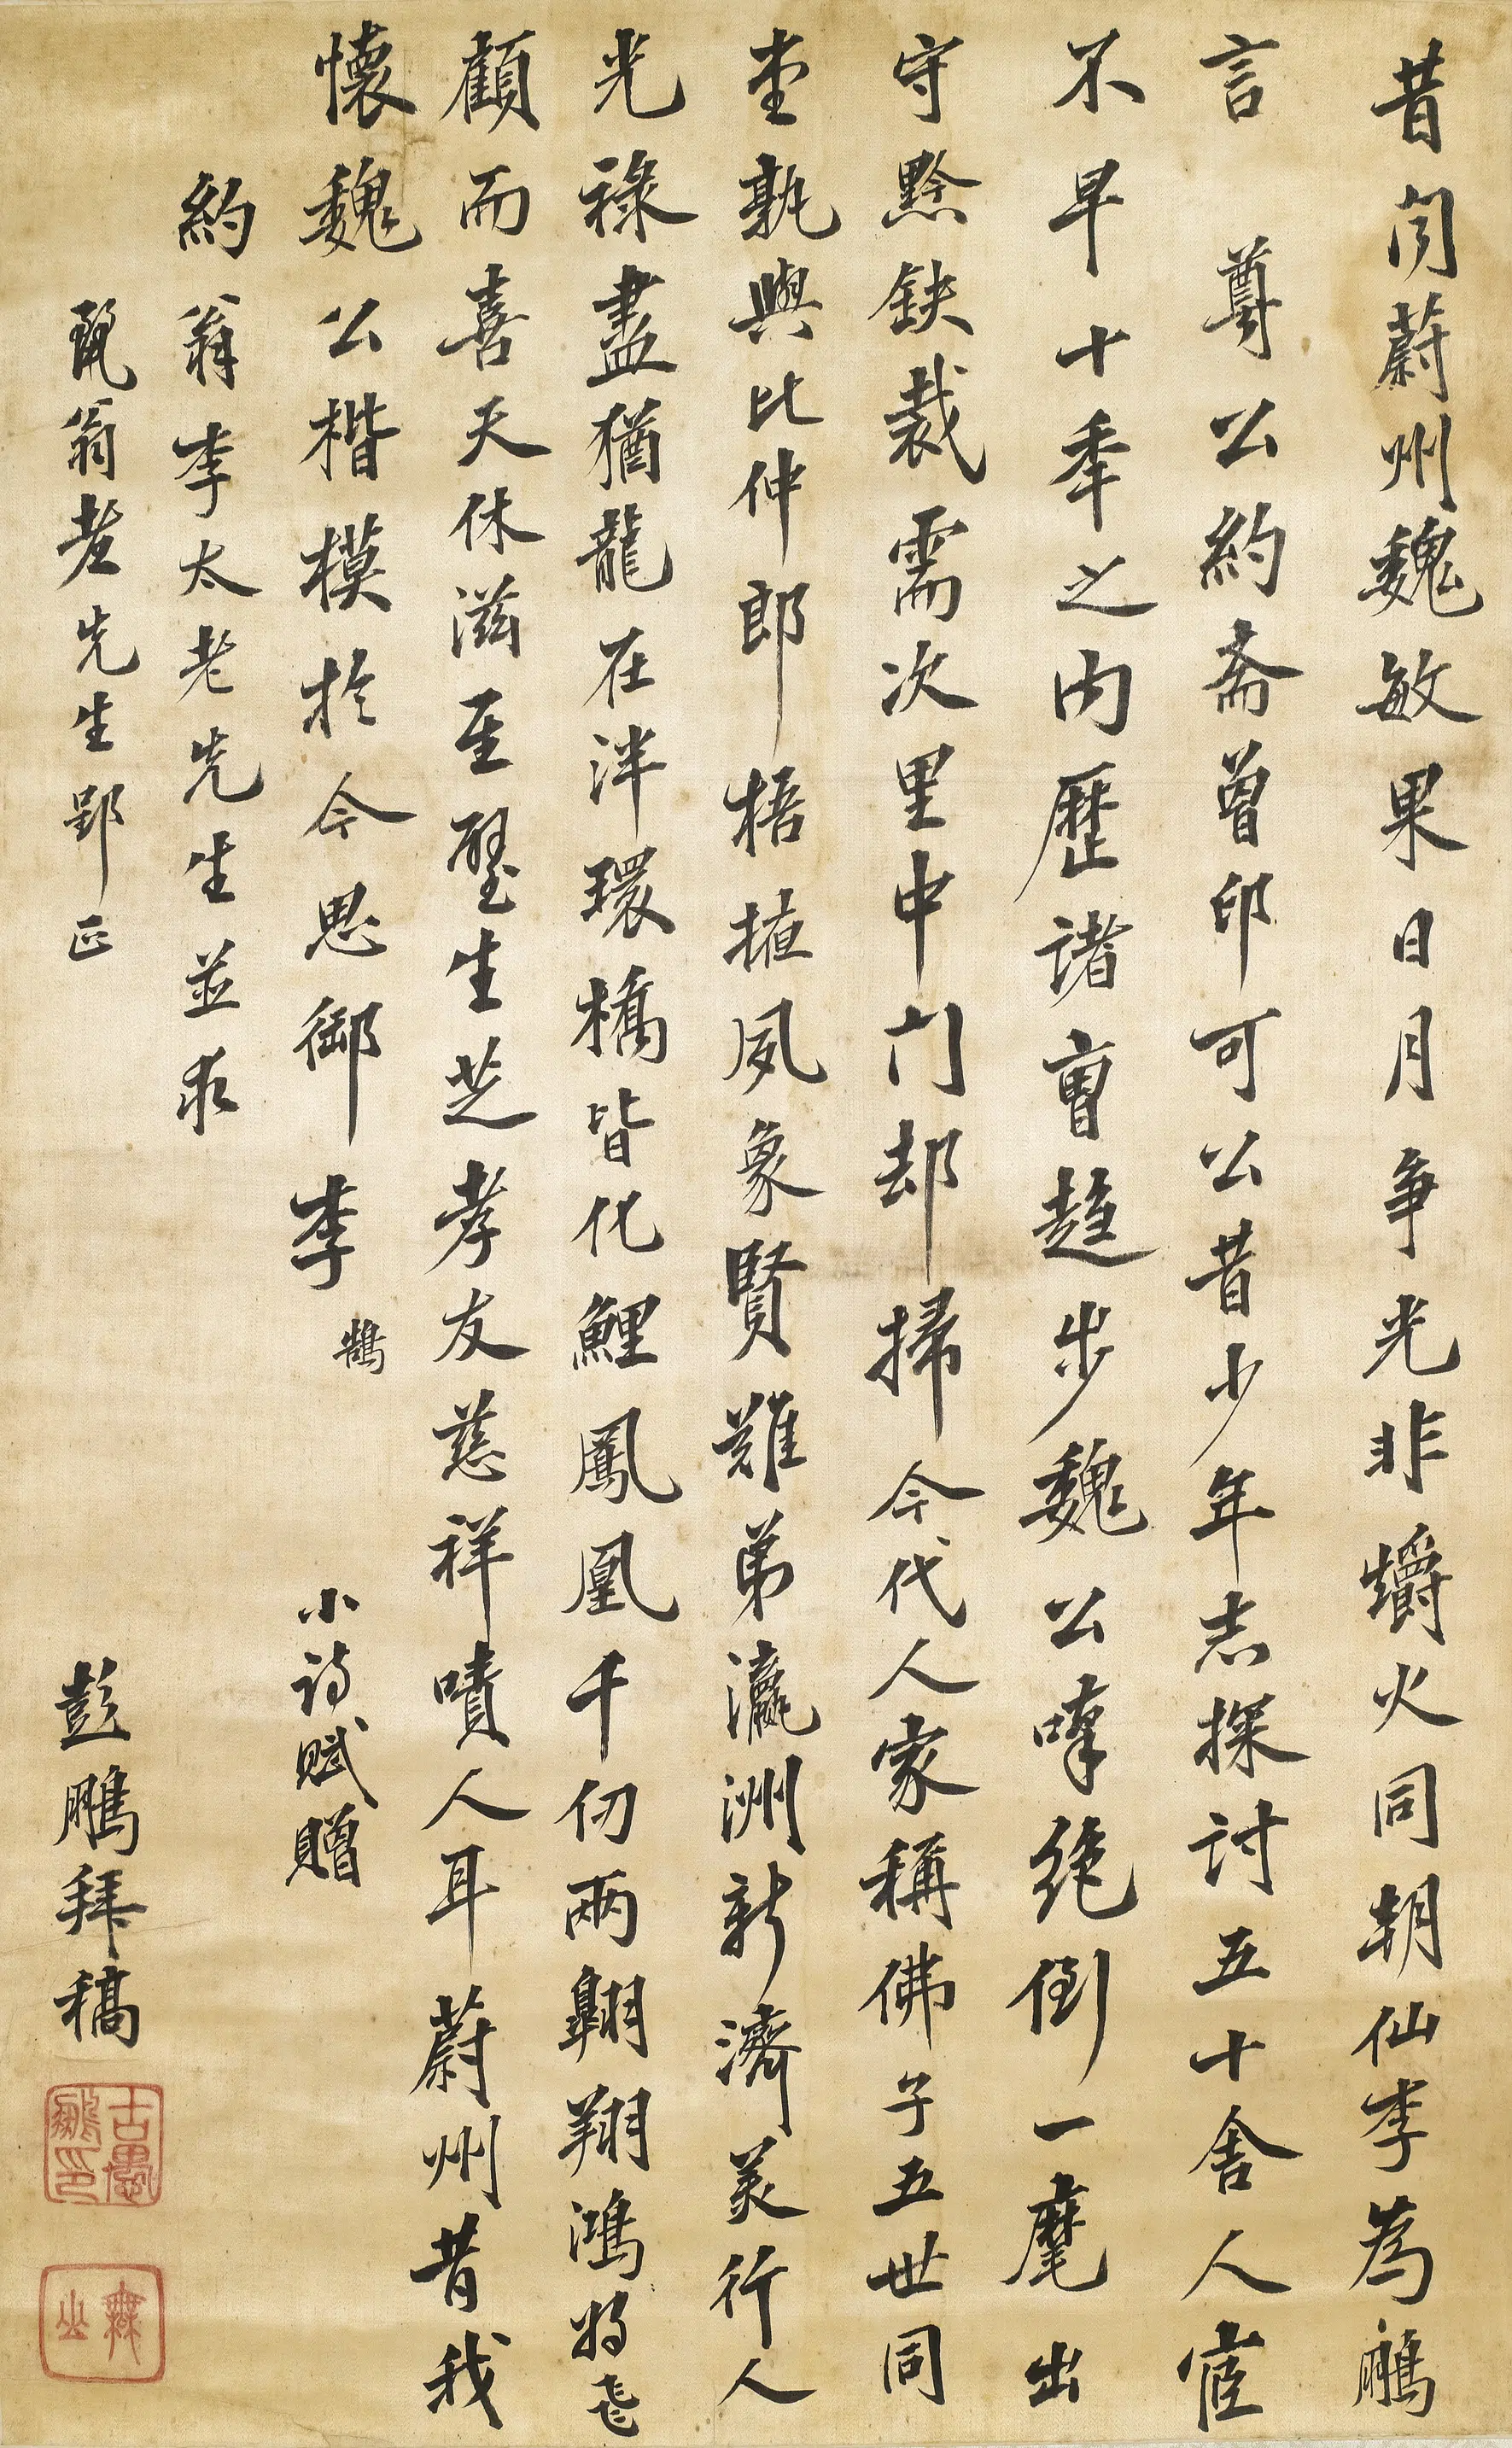 昔聞蔚州魏敏果日月争光非爝火同朝仙李為鵬
言尊公約斋曾印可公昔少年志探討五十舍人宦
不早十秊之内歷諸曹趍步魏公嘆绝倒一麾出
守黔缺裁需次里中门却掃今代人家稱佛子五世同
堂孰與比仲郎梧掖夙象賢難弟瀛洲新濟美行人
光祿盡猶龍在泮環橋皆化鯉鳳凰千仞兩翺翔鴻將飛
顧而喜天休滋至壂生芝孝友慈祥嘖人耳蔚州昔我
懷魏公楷模於今思御李鵠小诗赋贈
約翁李太老先生並求
甄翁老先生郢正
彭鵬拜稿
古愚
鵬印
無山